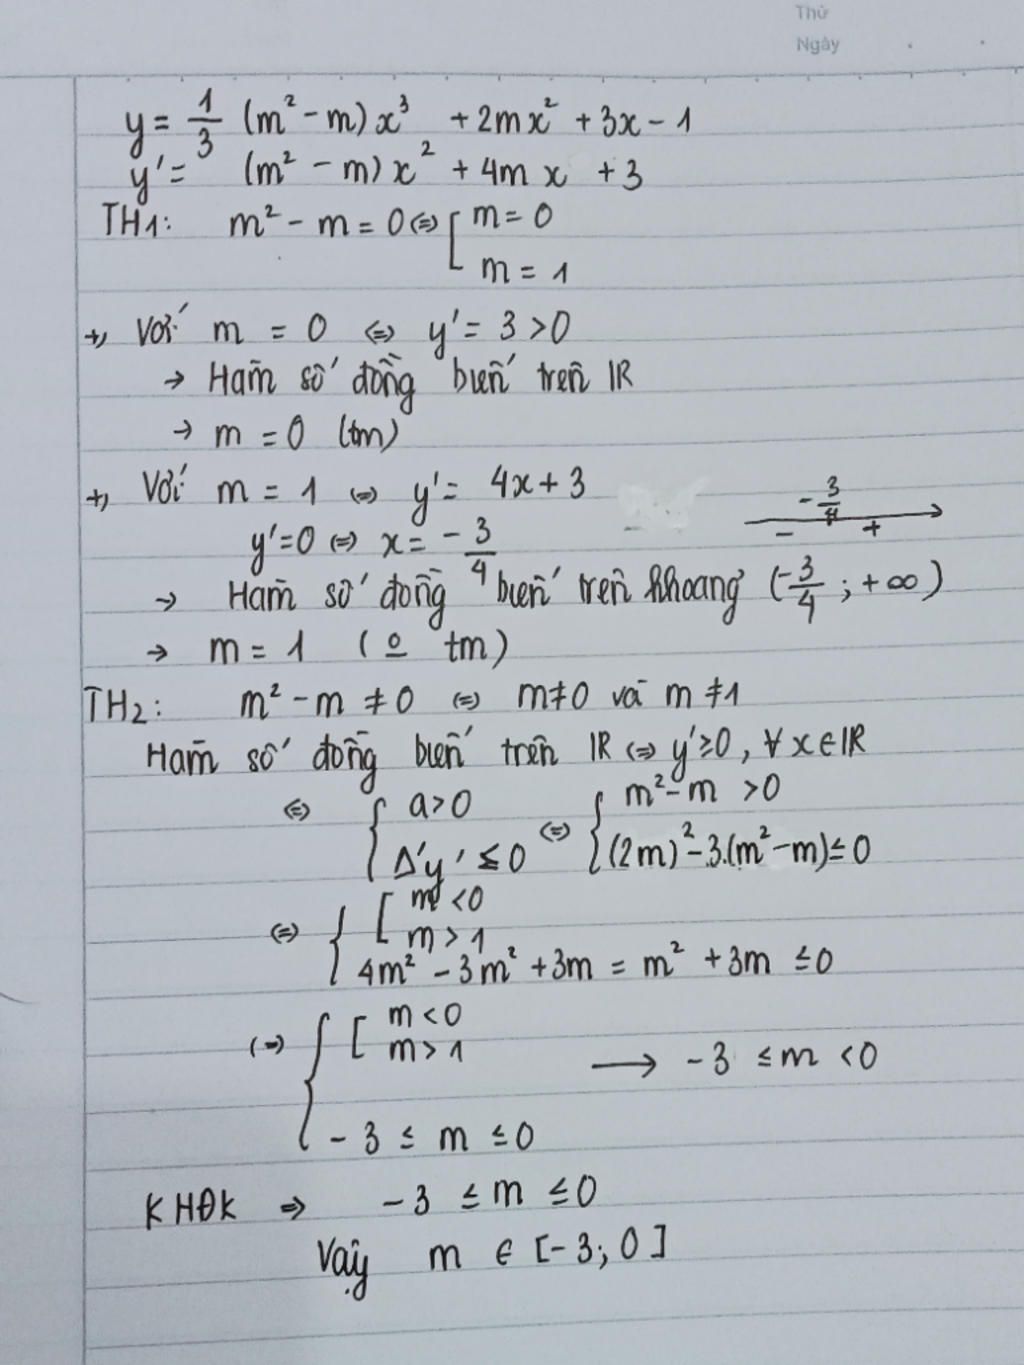 Thứ
Ngày
y = 1/3 (m² - m) x³ + 2mx² + 3x - 1
y' = (m² - m) x² + 4m x + 3
TH1: m² - m = 0 ⇔ [ m = 0
m = 1
+, Với m = 0 ⇔ y' = 3 > 0
→ Hàm số đồng biến trên IR
→ m = 0 (tm)
+, Với m = 1 ⇔ y' = 4x + 3
y' = 0 ⇔ x = - 3/4
- 3/4
- +
→ Hàm số đồng biến trên khoảng (-3/4 ; +∞)
→ m = 1 (o tm)
TH2: m² - m ≠ 0 ⇔ m ≠ 0 và m ≠ 1
Hàm số đồng biến trên IR ⇔ y' ≥ 0, ∀ x ∈ IR
⇔ { a > 0 ⇔ { m² - m > 0
Δ'y' ≤ 0 (2m)² - 3.(m² - m) ≤ 0
⇔ { [ m < 0
m > 1
4m² - 3m² + 3m = m² + 3m ≤ 0
⇔ { [ m < 0
m > 1 → -3 ≤ m < 0
- 3 ≤ m ≤ 0
KHĐK ⇒ - 3 ≤ m ≤ 0
Vậy m ∈ [-3; 0]